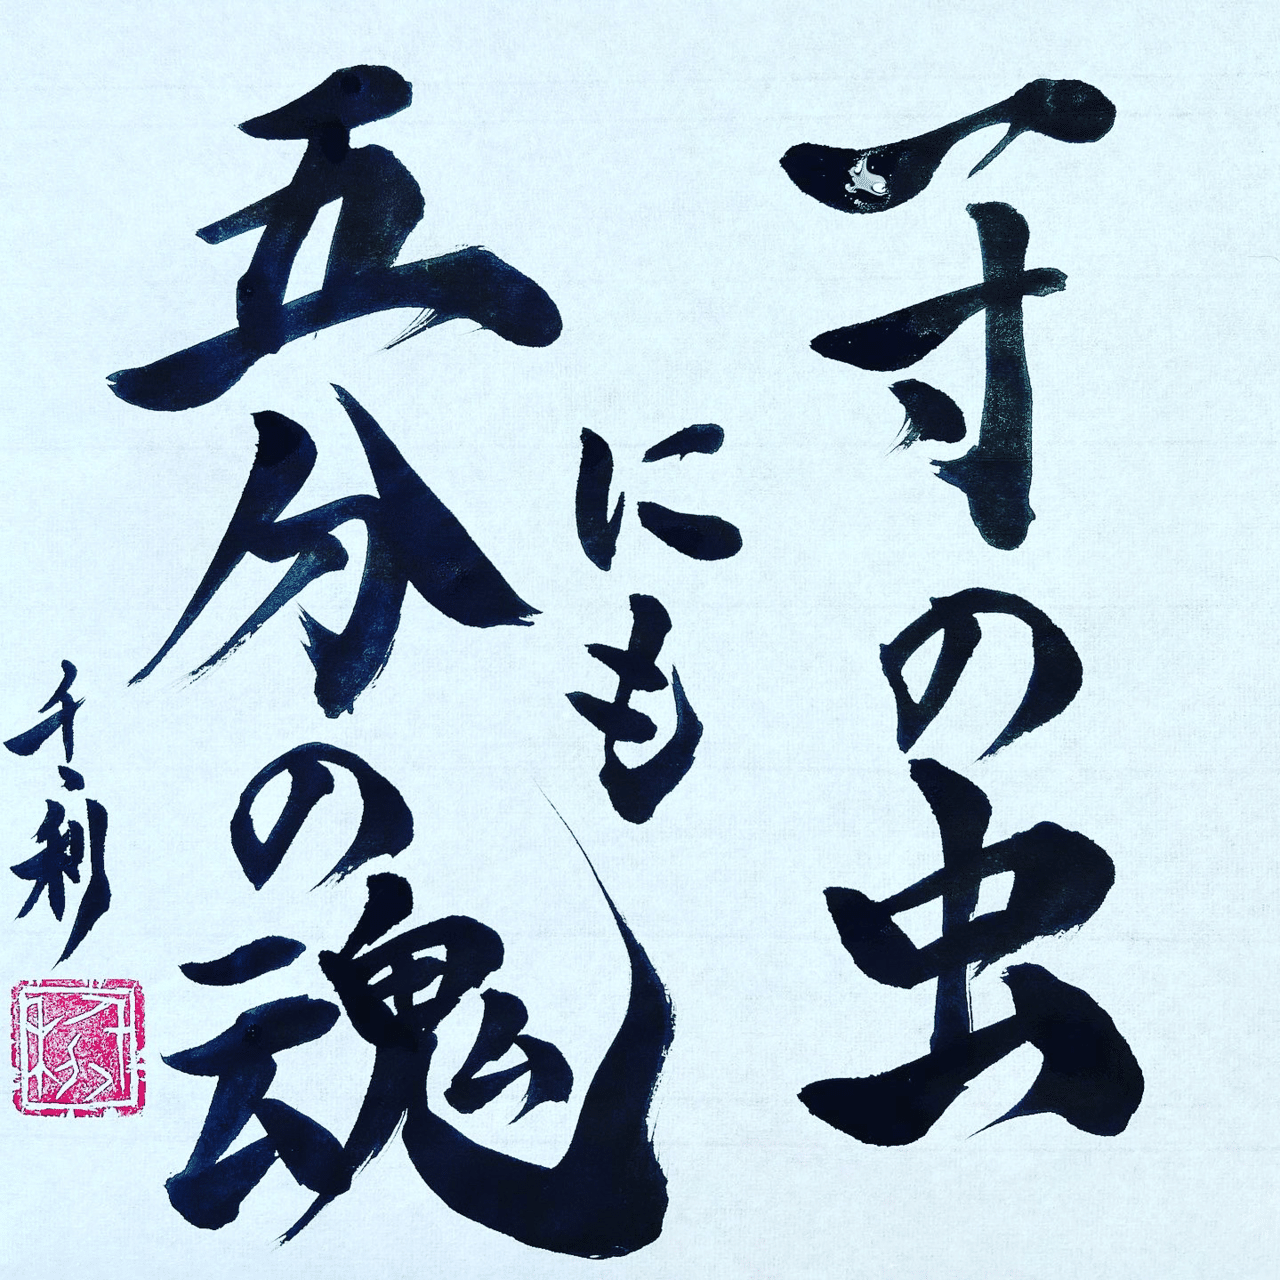 一寸の虫
にも
五分の魂
千利